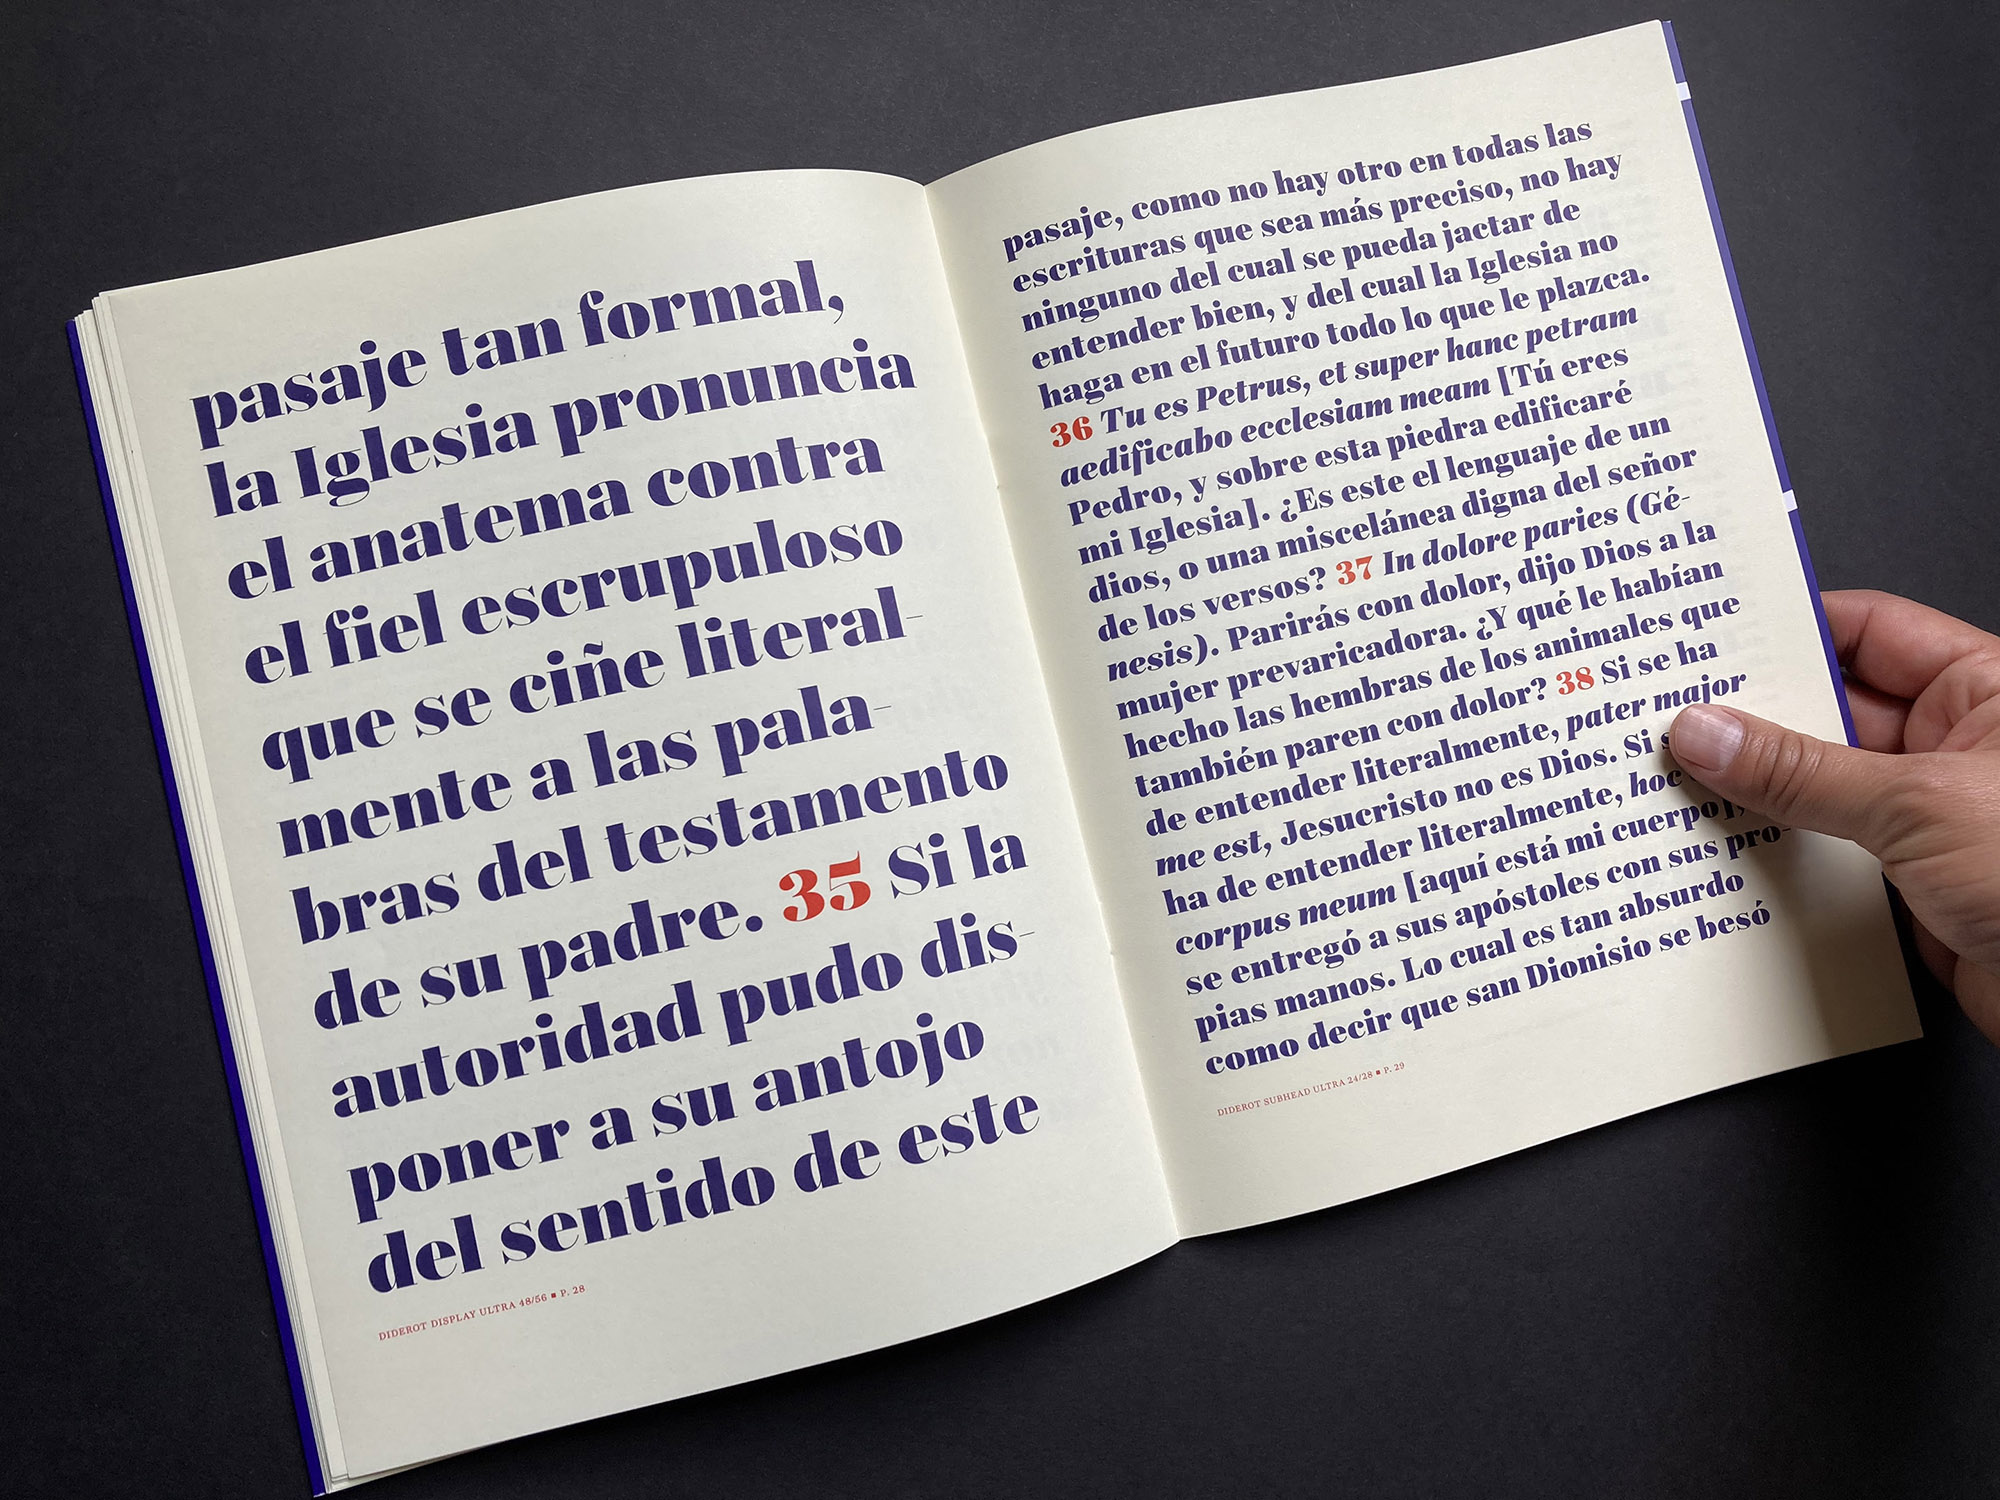 pasaje tan formal,
la Iglesia pronuncia
el anatema contra
el fiel escrupuloso
que se ciñe literal-
mente a las pala-
bras del testamento
de su padre. 35 Si la
autoridad pudo dis-
poner a su antojo
del sentido de este
DIDEROT DISPLAY ULTRA 48/56 ■ P. 28
pasaje, como no hay otro en todas las
escrituras que sea más preciso, no hay
ninguno del cual se pueda jactar de
entender bien, y del cual la Iglesia no
haga en el futuro todo lo que le plazca.
36 Tu es Petrus, et super hanc petram
aedificabo ecclesiam meam [Tú eres
Pedro, y sobre esta piedra edificaré
mi Iglesia]. ¿Es este el lenguaje de un
dios, o una miscelánea digna del señor
de los versos? 37 In dolore paries (Gé-
nesis). Parirás con dolor, dijo Dios a la
mujer prevaricadora. ¿Y qué le habían
hecho las hembras de los animales que
también paren con dolor? 38 Si se ha
de entender literalmente, pater major
me est, Jesucristo no es Dios. Si
ha de entender literalmente, hoc
corpus meum [aquí está mi cuerpo],
se entregó a sus apóstoles con sus pro-
pias manos. Lo cual es tan absurdo
como decir que san Dionisio se besó
DIDEROT SUBHEAD ULTRA 24/28 ■ P. 29